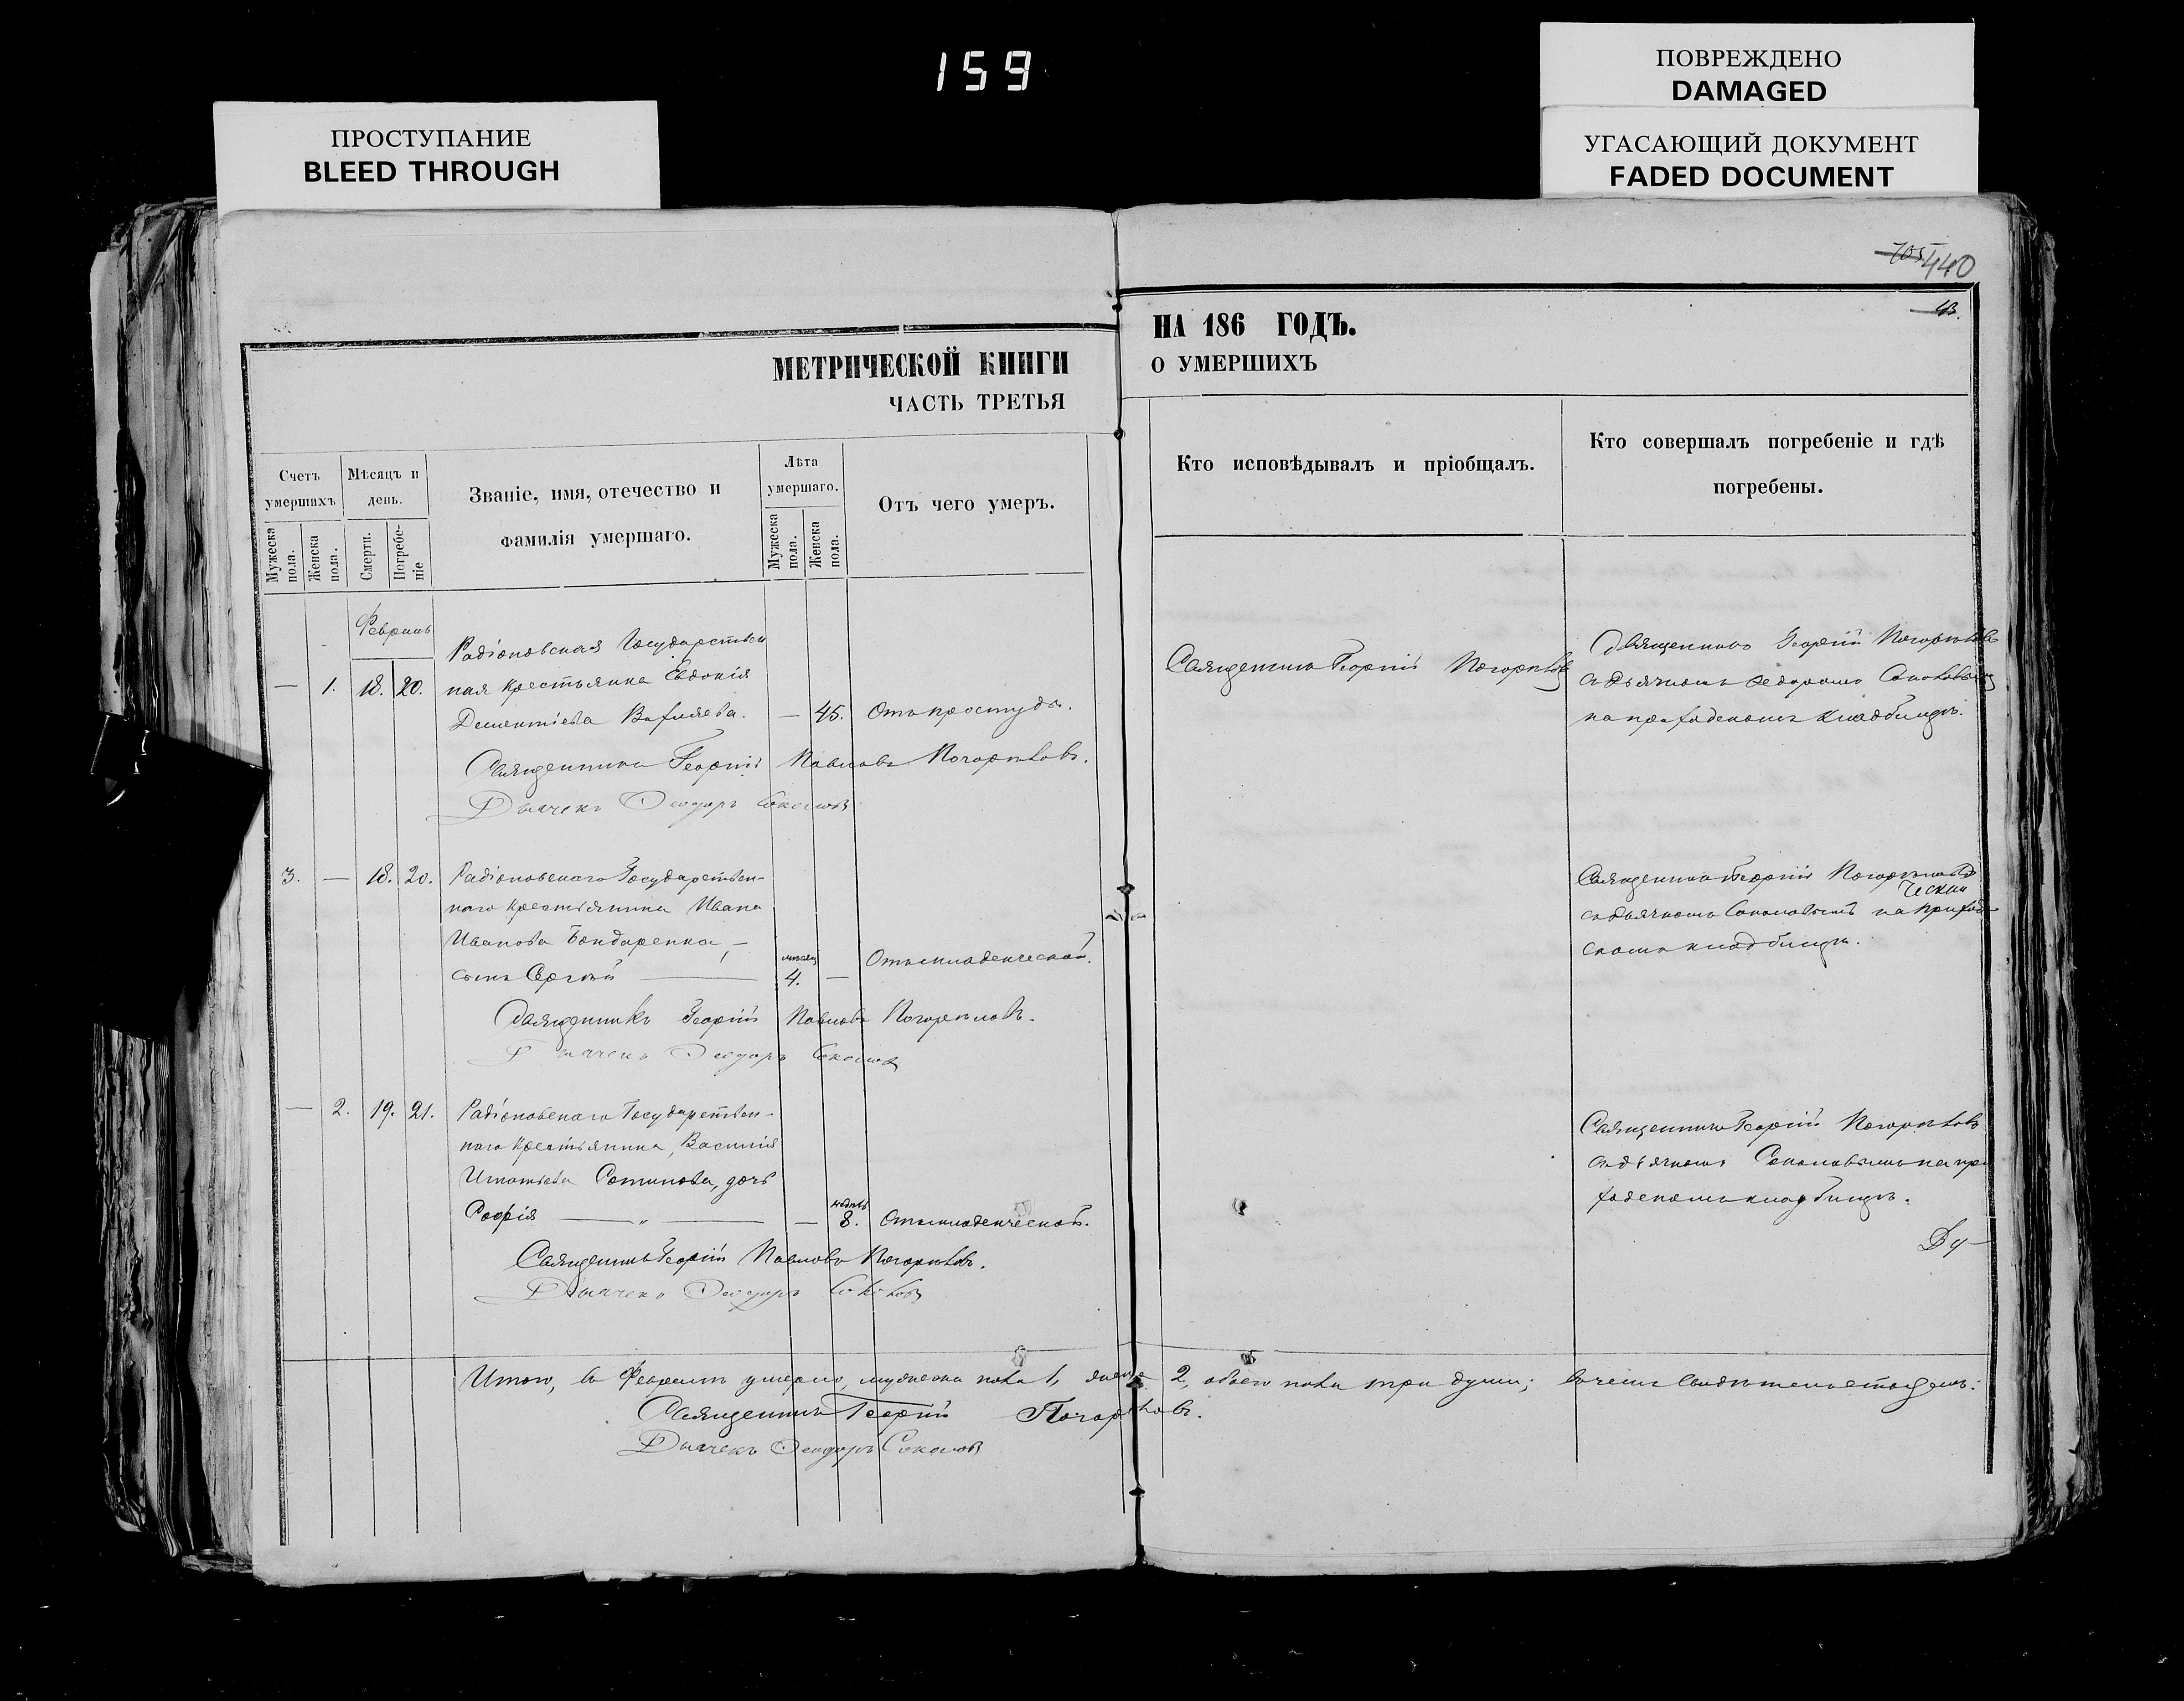 159
ПРОСТУПАНИЕ
BLEED THROUGH
ПОВРЕЖДЕНО
DAMAGED
УГАСАЮЩИЙ ДОКУМЕНТ
FADED DOCUMENT
440
МЕТРИЧЕСКОЙ КНИГИ
ЧАСТЬ ТРЕТЬЯ
Счетъ умершихъ
Мужеска пола.
Женска пола.
Мѣсяцъ и день.
Смерти.
Погребеніе
Званіе, имя, отечество и
фамилія умершаго.
Лѣта умершаго.
Мужеска пола.
Женска пола.
Отъ чего умеръ.
Февраль
— 1. 18. 20.
Радіоновская Государствен
ная крестьянка Евдокія
Дементіева — 45. Отъ простуды.
Священникъ Георгій Павловъ Погорѣловъ.
Дьячекъ Ѳеодоръ Соколовъ
3. — 18. 20. Радіоновскаго Государствен-
наго крестьянина Ивана
Иванова Бондаренка, —
сынъ Сергій 4. — Отъ младенческой.
Священникъ Георгій Павловъ Погорѣловъ.
Дьячекъ Ѳеодоръ Соколовъ
— 2. 19. 21. Радіоновскаго Государствен-
наго крестьянина, Василія
дочь
Софія — 8. Отъ младенческой.
Священникъ Георгій Павловъ Погорѣловъ.
Дьячекъ Ѳеодоръ Соколовъ
НА 186 ГОДЪ.
О УМЕРШИХЪ
Кто исповѣдывалъ и пріобщалъ.
Кто совершалъ погребеніе и гдѣ
погребены.
Священникъ Георгій Погорѣловъ
Священникъ Георгій Погорѣловъ
съ дьячкомъ Ѳедоромъ Соколовымъ
на приходскомъ кладбищѣ.
Священникъ Георгій Погорѣловъ
съ дьячкомъ Соколовымъ на приход-
скомъ кладбищѣ.
Священникъ Георгій Погорѣловъ
съ дьячкомъ Соколовымъ на при
ходскомъ кладбищѣ.
Итого, въ Февралѣ умерло, мужеска пола 1, женска 2, обоего пола три души; въ чемъ свидѣтельствуемъ:
Священникъ Георгій Погорѣловъ.
Дьячекъ Ѳеодоръ Соколовъ